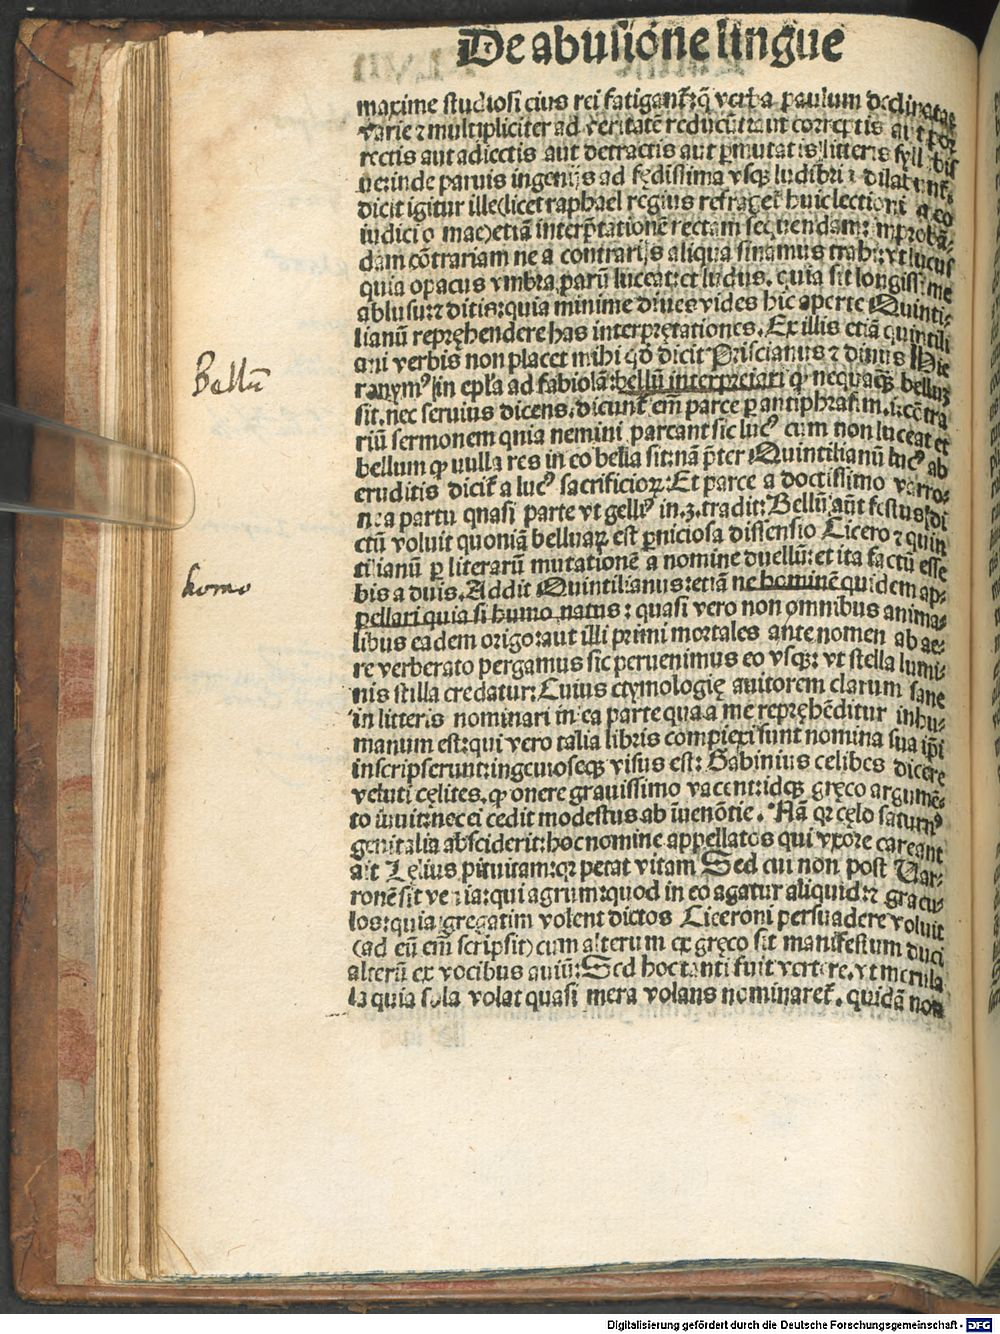 De abusione lingue
maxime studiosi eius rei fatigant̃: q̃ verba paulum declinata
varie ⁊ multipliciter ad veritatẽ reducũt: aut correptis aut por
rectis aut adiectis aut detractis aut p̱mutatis litteris syllabis
ue: inde paruis ingenijs ad fędissima vsqꝫ ludibria dilabunt̃,
dicit igitur ille (licet raphael regius refraget̃ huic lectioni a eo
iudicio meo) etiã interp̃tationẽ rectam sequendam: improbã-
dam cõtrariam ne a contrarijs aliqua sinamus trahi: vt lucus
quia opacus vmbra parũ luceat: et ludus, quia sit longissime
a blusu: ⁊ ditis: quia minime diues vides hic aperte Quinti-
lianũ repręhendere has interprętationes. Ex illis etiã quintili
ani verbis non placet mihi qd̃ dicit Priscianus ⁊ diuus Hie
ronymꝰ in epl̃a ad fabiolã: bellũ interpretari qꝫ nequaqꝫ bellum
sit. nec seruius dicens. dicunt̃ em̃ parce p̱ antiphrasim .i. cõtra
riũ sermonem quia nemini parcant sic lucꝰ cum non luceat et
bellum qꝫ nulla res in eo bella sit: nã p̃ter Quintilianũ lucꝰ ab
eruditis dicit̃ a lucꝰ sacrificioꝝ: Et parce a doctissimo varro-
ne a partu quasi parte vt gellꝰ in .3. tradit: Bellũ aũt festus di
ctũ voluit quoniã belluaꝝ est p̱niciosa dissensio Cicero ⁊ quin
tilianũ p̱ literarũ mutationẽ a nomine duellũ: et ita factũ esse
bis a duis. Addit Quintilianus: etiã ne hominẽ quidem ap-
pellari quia si humo natus: quasi vero non omnibus anima-
libus eadem origo: aut illi primi mortales ante nomen ab ae-
re verberato pergamus sic peruenimus eo vsqꝫ: vt stella lumi-
nis stilla credatur: Cuius etymologię auitorem clarum sane
in litteris nominari in ea parte qua a me repręhẽditur inhu-
manum est: qui vero talia libris complexi sunt nomina sua ip̃i
inscripserunt: ingenioseqꝫ visus est: Gabinius celibes dicere
veluti cęlites. qꝫ onere grauissimo vacent: idqꝫ gręco argumẽ-
to iuuit: nec ei cedit modestus ab iuenõtie. Nã qꝛ cęlo saturnꝰ
genitalia absciderit: hoc nomine appellatos qui vxore careant
ait Lęlius pituitam: qꝛ petat vitam Sed cui non post Var-
ronẽ sit venia: qui agrum: quod in eo agatur aliquid: ⁊ gracu-
los: quia gregatim volent dictos Ciceroni persuadere voluit
(ad eũ em̃ scripsit) cum alterum ex gręco sit manifestum duci
alterũ ex vocibus auiũ: Sed hoc tanti fuit vertere, vt merula
la quia sola volat quasi mera volans nominaret̃. quidã non
Bellũ
homo
Digitalisierung gefördert durch die Deutsche Forschungsgemeinschaft - DFG